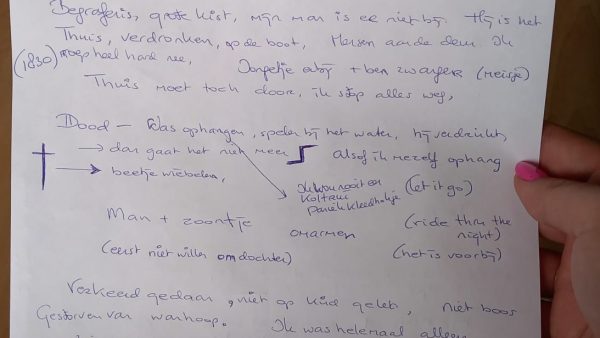 Begrafenis, grote kist, mijn man is er niet bij Hij is het
Thuis, verdronken, op de boot, Mensen aan de deur Ik
(1830) roep heel hard nee, Jongetje erbij + ben zwanger (meisje)
Thuis moet toch door, ik stop alles weg,
Dood – Was ophangen, spelen bij het water, hij verdrinkt,
→ dan gaat het niet meer alsof ik mezelf ophang
→ beetje wiebelen, (let it go)
Man + zoontje omarmen (ride thru the
night)
(eerst niet willen om dochter) (het is voorbij)
Verkeerd gedaan, niet op kind gelet, niet boos
Gestorven van wanhoop. Ik was helemaal alleen